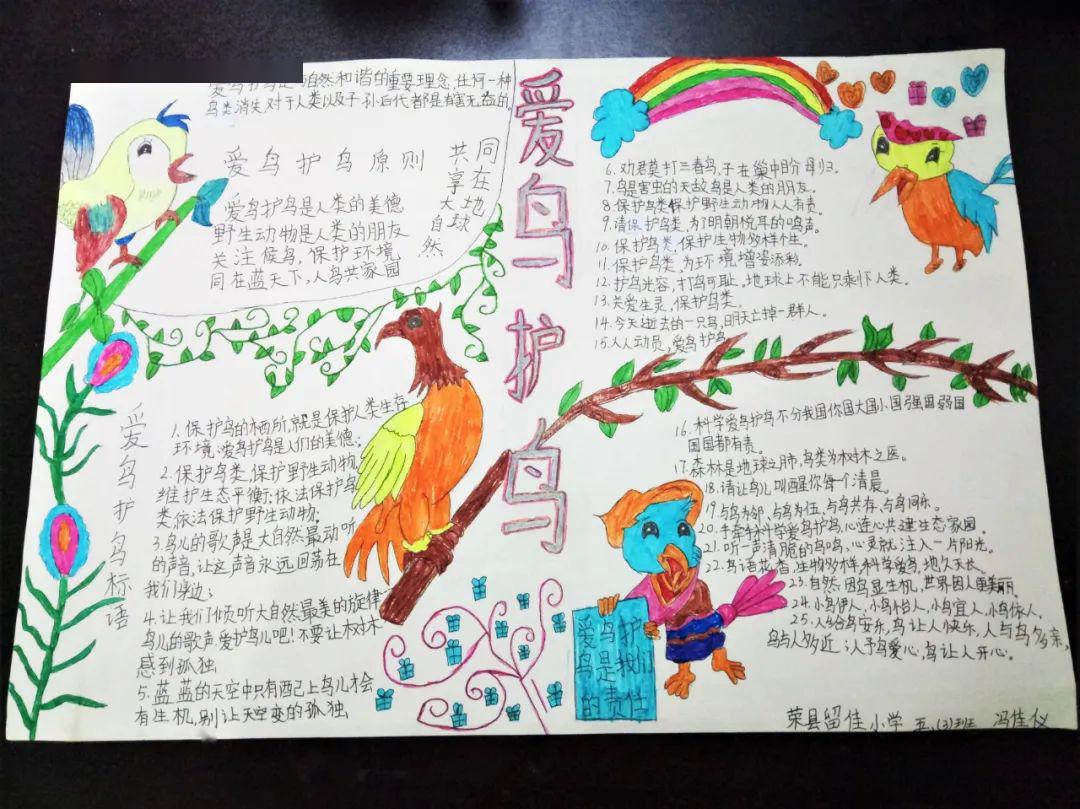 爱鸟护鸟是与自然和谐的重要理念,任何一种
鸟类消失,对于人类以及子孙后代都是有害无益的.
爱鸟护鸟原则
爱鸟护鸟是人类的美德
野生动物是人类的朋友
关注候鸟,保护环境
同在蓝天下,人鸟共家园
共同
享在
大地
自球
然
爱鸟护鸟
爱鸟护鸟标语
1.保护鸟的栖所,就是保护人类生存
环境;爱鸟护鸟是人们的美德;
2.保护鸟类,保护野生动物,
维护生态平衡;依法保护鸟
类,依法保护野生动物;
3.鸟儿的歌声是大自然最动听
的声音,让这声音永远回荡在
我们身边;
4.让我们倾听大自然最美的旋律
鸟儿的歌声,爱护鸟儿吧!不要让树木
感到孤独
5.蓝蓝的天空中只有配上鸟儿才会
有生机,别让天空变的孤独
6.劝君莫打三春鸟,子在巢中盼母归.
7.鸟是害虫的天敌鸟是人类的朋友。
8.保护鸟类保护野生动物人人有责。
9.请保护鸟类,为了明朝悦耳的鸣声。
10.保护鸟类,保护生物多样性。
11.保护鸟类,为环境增姿添彩。
12.护鸟光荣,打鸟可耻,地球上不能只剩下人类。
13.关爱生灵,保护鸟类。
14.今天逝去的一只鸟,明天亡掉一群人。
15.人人动员,爱鸟护鸟
16.科学爱鸟护鸟不分我国你国大国小国强国弱国
国国都有责。
17.森林是地球之肺,鸟类为树木之医。
18.请让鸟儿叫醒你每个清晨。
19.与鸟为邻,与鸟为伍,与鸟共存,与鸟同乐。
20.手牵手科学爱鸟护鸟,心连心共建生态家园。
21.听一声清脆的鸟鸣,心灵就注入一片阳光。
22.鸟语花香,生物多样,科学爱鸟,地久天长。
23.自然因鸟显生机,世界因人更美丽
24.小鸟伊人,小鸟怡人,小鸟宜人,小鸟依人。
25.人给鸟安乐,鸟让人快乐,人与鸟多亲,
鸟与人多近;人予鸟爱心,鸟让人开心。
爱鸟护
鸟是我们
的责任
荣县留佳小学 五、(3)班 冯佳仪